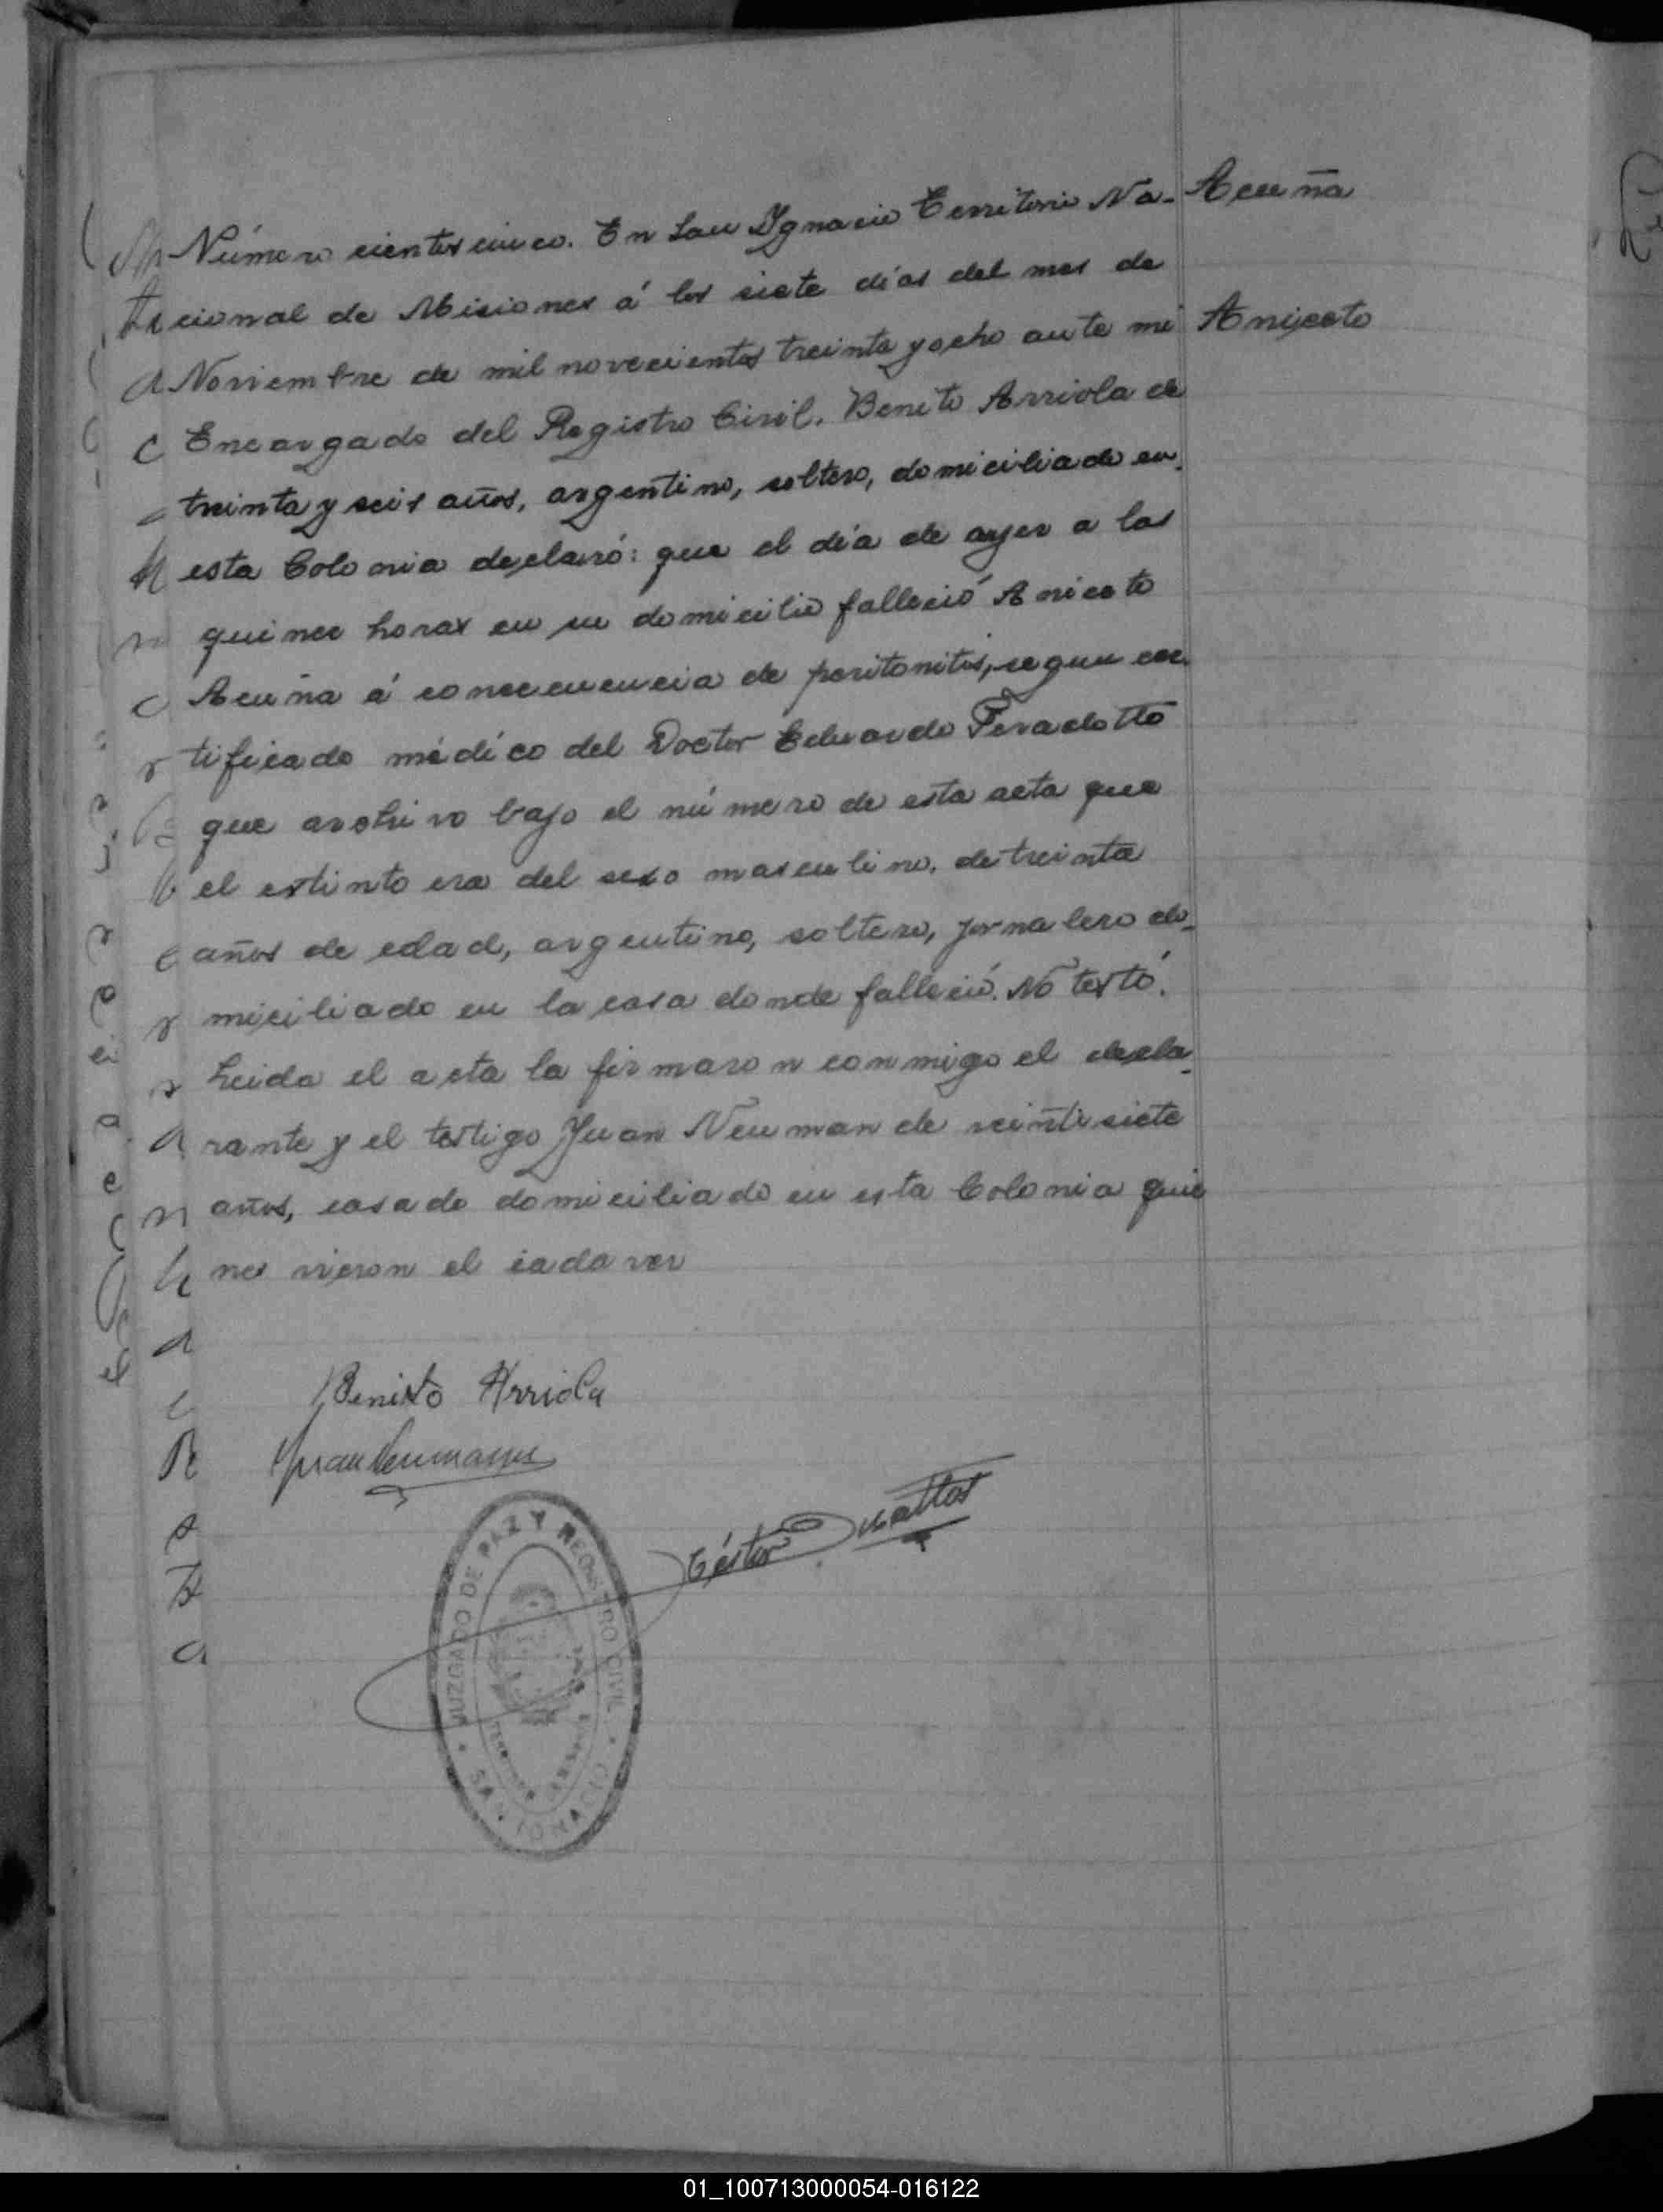 Acuña
Aniceto
Número cientos cinco. En San Ygnacio Territorio Na-
cional de Misiones á los siete días del mes de
Noviembre de mil novecientos treinta y ocho ante mi
Encargado del Registro Civil, Benito Arriola de
treinta y seis años, argentino, soltero, domiciliado en
esta Colonia declaró: que el día de ayer a las
quince horas en su domicilio falleció Aniceto
Acuña á consecuencia de peritonitis, segun cer
tificado médico del Doctor Eduardo
que archivo bajo el número de esta acta que
el estinto era del sexo masculino, de treinta
años de edad, argentino, soltero, jornalero do-
miciliado en la casa donde falleció. No testó.
Leida el acta la firmaron conmigo el decla-
rante y el testigo Juan Neuman de veintisiete
años, casado domiciliado en esta Colonia quie
nes vieron el cadaver
Benito Arriola
Juan Neumann
JUZGADO DE PAZ Y REGISTRO CIVIL
SAN IGNACIO
01_100713000054-016122